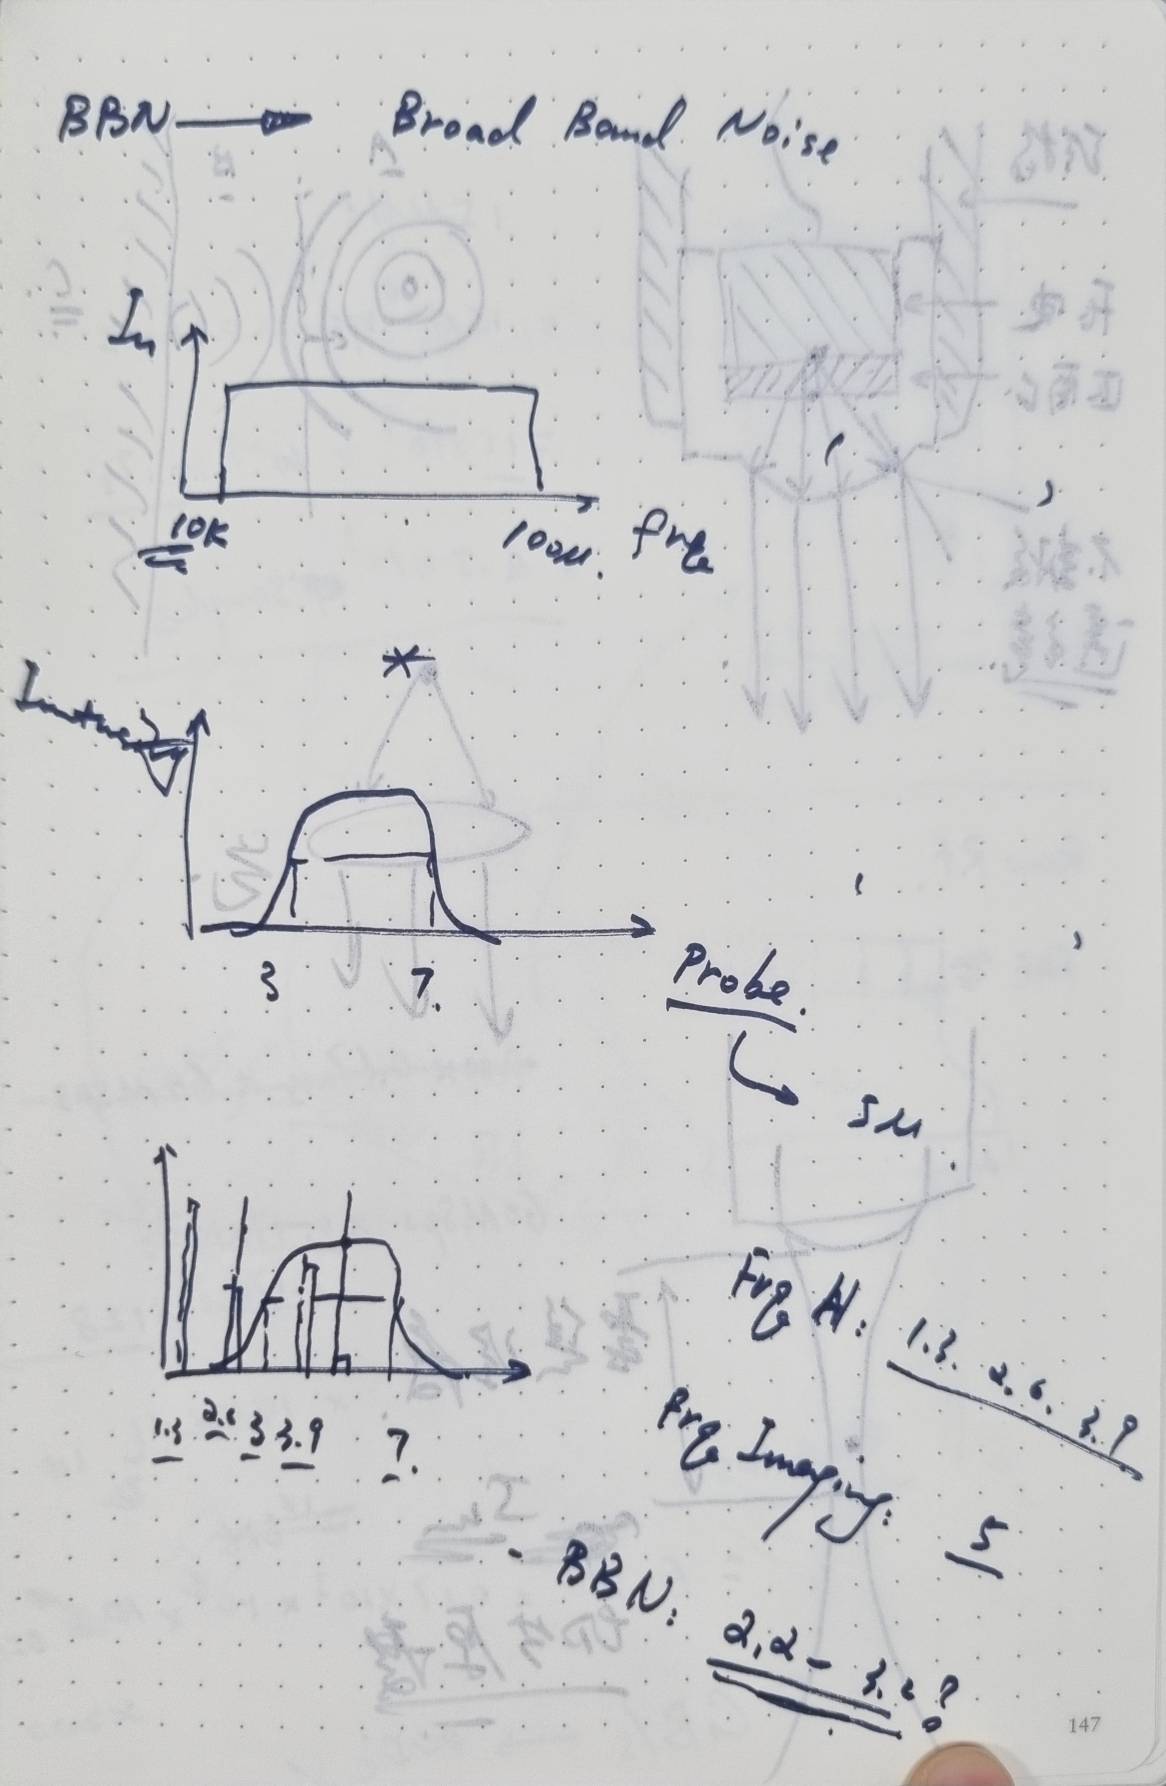 BBN → Broad Band Noise
In
10K
100M.
frq
Intensity
3
7.
Probe.
5M
Frq H: 1.3. 2.6. 3.9
1.3 2.6 3 3.9 7.
Frq Imaging: 5
BBN: 2.2 - 3.2?
147